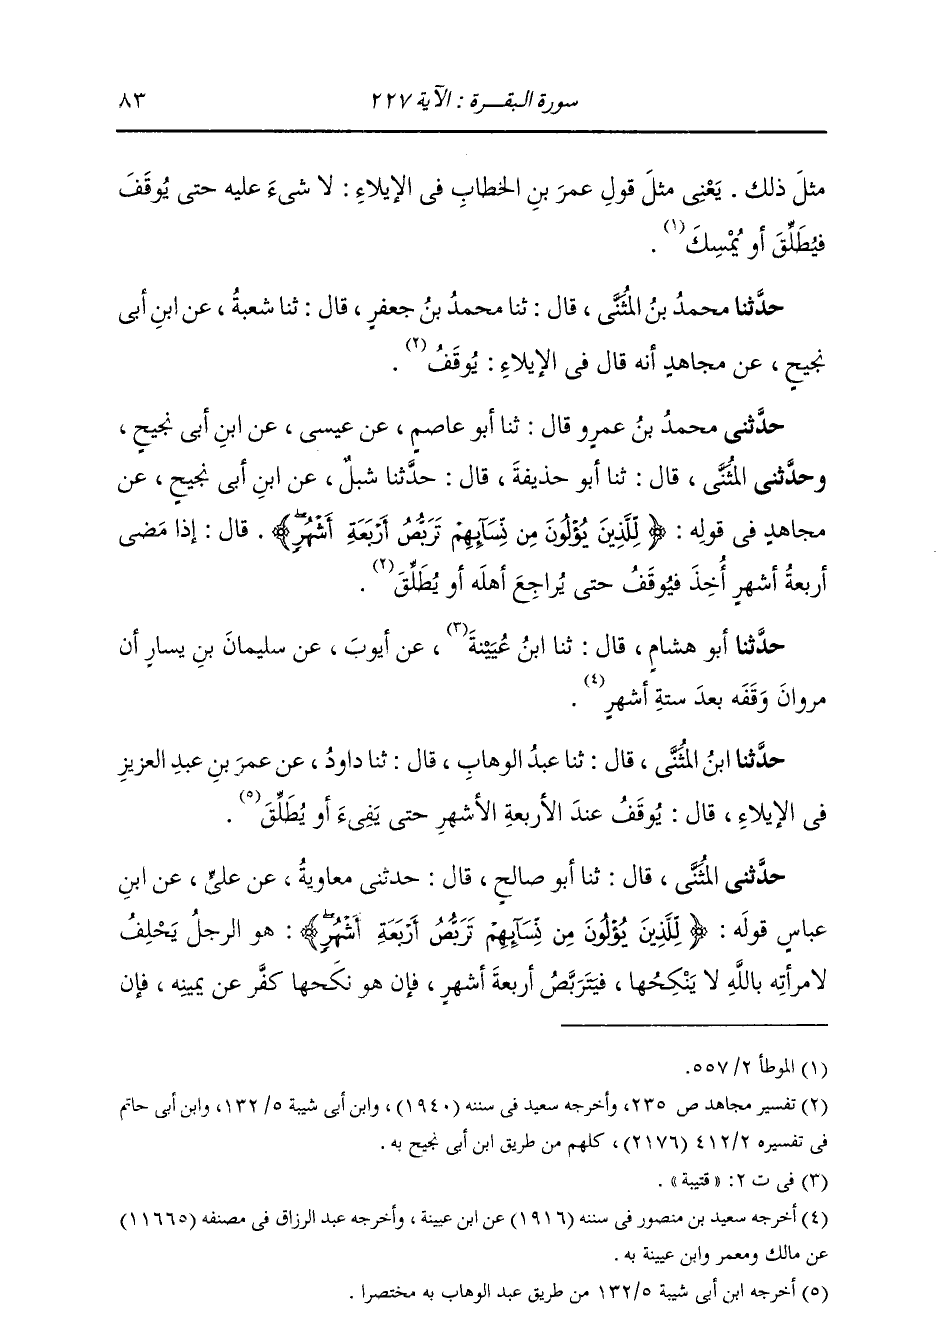 سورة البقـــرة : الآية ٢٢٧
٨٣
مثلَ ذلك . يَعْنِى مثلَ قولِ عمرَ بنِ الخطابِ فى الإيلاءِ : لا شىءَ عليه حتى يُوقَفَ
فيُطَلِّقَ أو يُمْسِكَ(١) .
حدَّثنا محمدُ بنُ المُثَنَّى ، قال : ثنا محمدُ بنُ جعفرٍ ، قال : ثنا شعبةُ ، عن ابنِ أبى
نجيحٍ ، عن مجاهدٍ أنه قال فى الإيلاءِ : يُوقَفُ(٢) .
حدَّثنى محمدُ بنُ عمرٍو قال : ثنا أبو عاصمٍ ، عن عيسى ، عن ابنِ أبى نجيحٍ ،
وحدَّثنى المُثَنَّى ، قال : ثنا أبو حذيفةَ ، قال : حدَّثنا شبلٌ ، عن ابنِ أبى نجيحٍ ، عن
مجاهدٍ فى قولِه : ﴿ لِّلَّذِينَ يُؤْلُونَ مِن نِّسَآئِهِمْ تَرَبُّصُ أَرْبَعَةِ أَشْهُرٍۖ ﴾ . قال : إذا مَضى
أربعةُ أشهرٍ أُخِذَ فيُوقَفُ حتى يُراجِعَ أهلَه أو يُطَلِّقَ(٢) .
حدَّثنا أبو هشامٍ ، قال : ثنا ابنُ عُيَيْنةَ(٣) ، عن أيوبَ ، عن سليمانَ بنِ يسارٍ أن
مروانَ وَقَفَه بعدَ ستةِ أشهرٍ(٤) .
حدَّثنا ابنُ المُثَنَّى ، قال : ثنا عبدُ الوهابِ ، قال : ثنا داودُ ، عن عمرَ بنِ عبدِ العزيزِ
فى الإيلاءِ ، قال : يُوقَفُ عندَ الأربعةِ الأشهرِ حتى يَفِىءَ أو يُطَلِّقَ(٥) .
حدَّثنى المُثَنَّى ، قال : ثنا أبو صالحٍ ، قال : حدثنى معاويةُ ، عن علىٍّ ، عن ابنِ
عباسٍ قولَه : ﴿ لِّلَّذِينَ يُؤْلُونَ مِن نِّسَآئِهِمْ تَرَبُّصُ أَرْبَعَةِ أَشْهُرٍۖ ﴾ : هو الرجلُ يَحْلِفُ
لامرأتِه باللَّهِ لا يَنْكِحُها ، فيَتَرَبَّصُ أربعةَ أشهرٍ ، فإن هو نكَحها كفَّر عن يمينِه ، فإن
(١) الموطأ ٢/ ٥٥٧.
(٢) تفسير مجاهد ص ٢٣٥، وأخرجه سعيد فى سننه (١٩٤٠) ، وابن أبى شيبة ٥/ ١٣٢، وابن أبى حاتم
فى تفسيره ٤١٢/٢ (٢١٧٦) ، كلهم من طريق ابن أبى نجيح به .
(٣) فى ت ٢: « قتيبة » .
(٤) أخرجه سعيد بن منصور فى سننه (١٩١٦) عن ابن عيينة ، وأخرجه عبد الرزاق فى مصنفه (١١٦٦٥)
عن مالك ومعمر وابن عيينة به .
(٥) أخرجه ابن أبى شيبة ١٣٢/٥ من طريق عبد الوهاب به مختصرا .